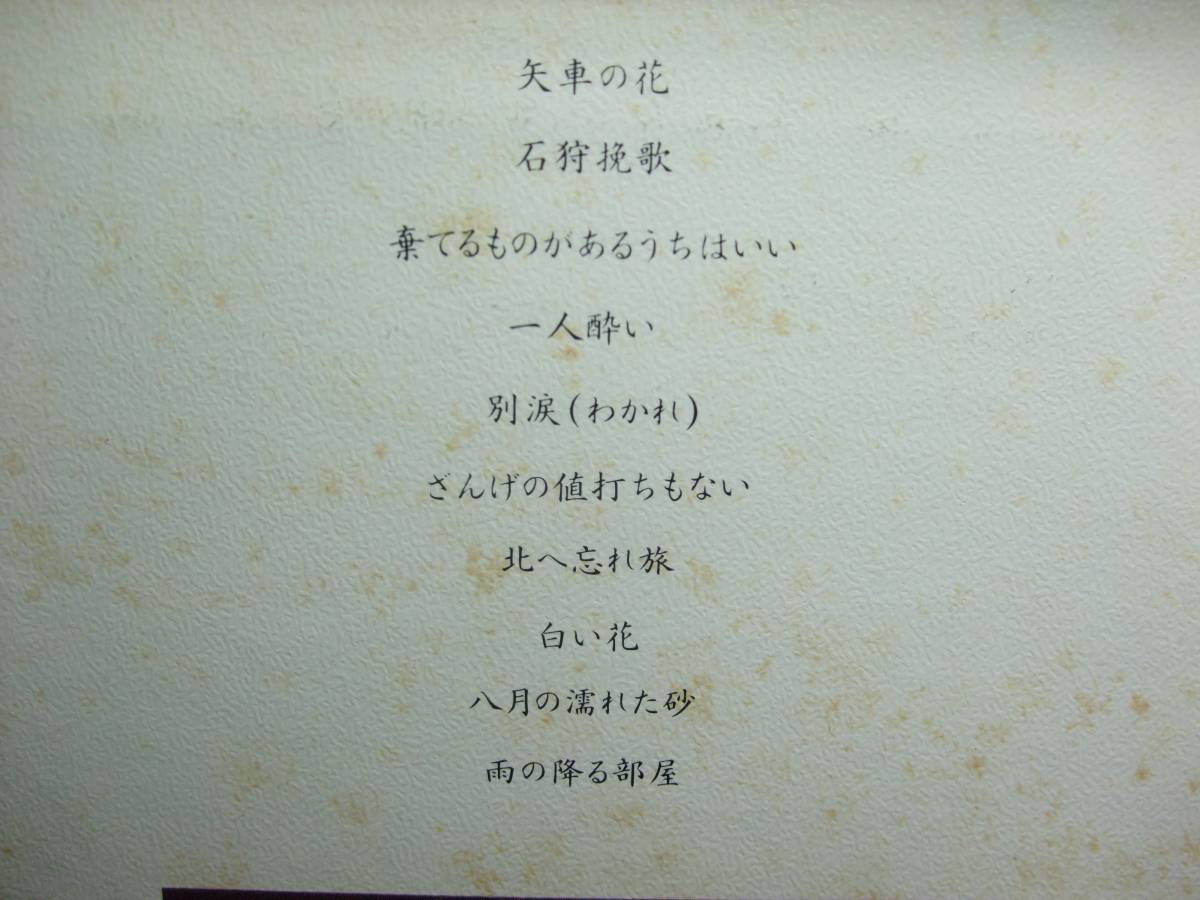 矢車の花
石狩挽歌
棄てるものがあるうちはいい
一人酔い
別涙(わかれ)
ざんげの値打ちもない
北へ忘れ旅
白い花
八月の濡れた砂
雨の降る部屋